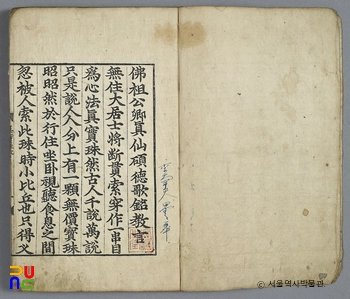 佛祖公卿眞仙碩德歌銘敎言
無住大居士將斷貫索穿作一串目
爲心法眞寶珠然古人千說萬說
只是說人人分上有一顆無價寶珠
昭昭然於行住坐卧視聽食息之間
忽被人索此珠時小比丘也只得叉
ⓒ 서울역사박물관